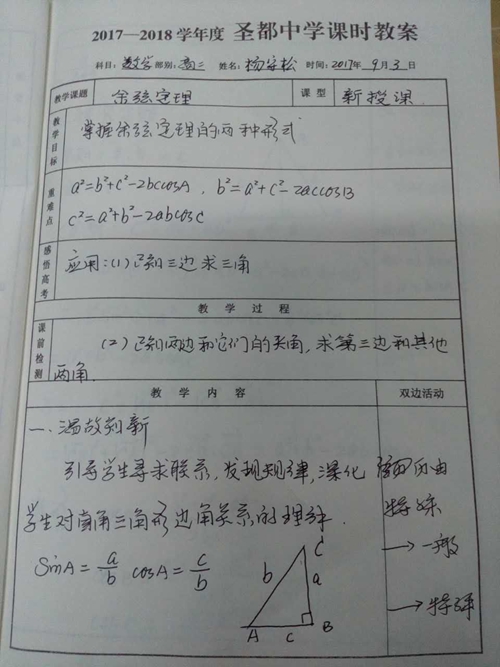 2017—2018学年度 圣都中学课时教案
科目：数学 部别：高二 姓名：杨宇松 时间：2017年9月3日
教学课题 余弦定理 课型 新授课
教学目标 掌握余弦定理的两种形式
重难点 a²=b²+c²-2bccosA，b²=a²+c²-2accosB
c²=a²+b²-2abcosC
感悟高考 应用：(1)已知三边求三角
教学过程
课前检测 (2)已知两边和它们的夹角，求第三边和其他
两角
教学内容 双边活动
一.温故知新
引导学生寻求联系，发现规律，深化
学生对直角三角形边角关系的理解.
sinA=a/b cosA=c/b
C
b a
A c B
由
特殊
→一般
→特殊